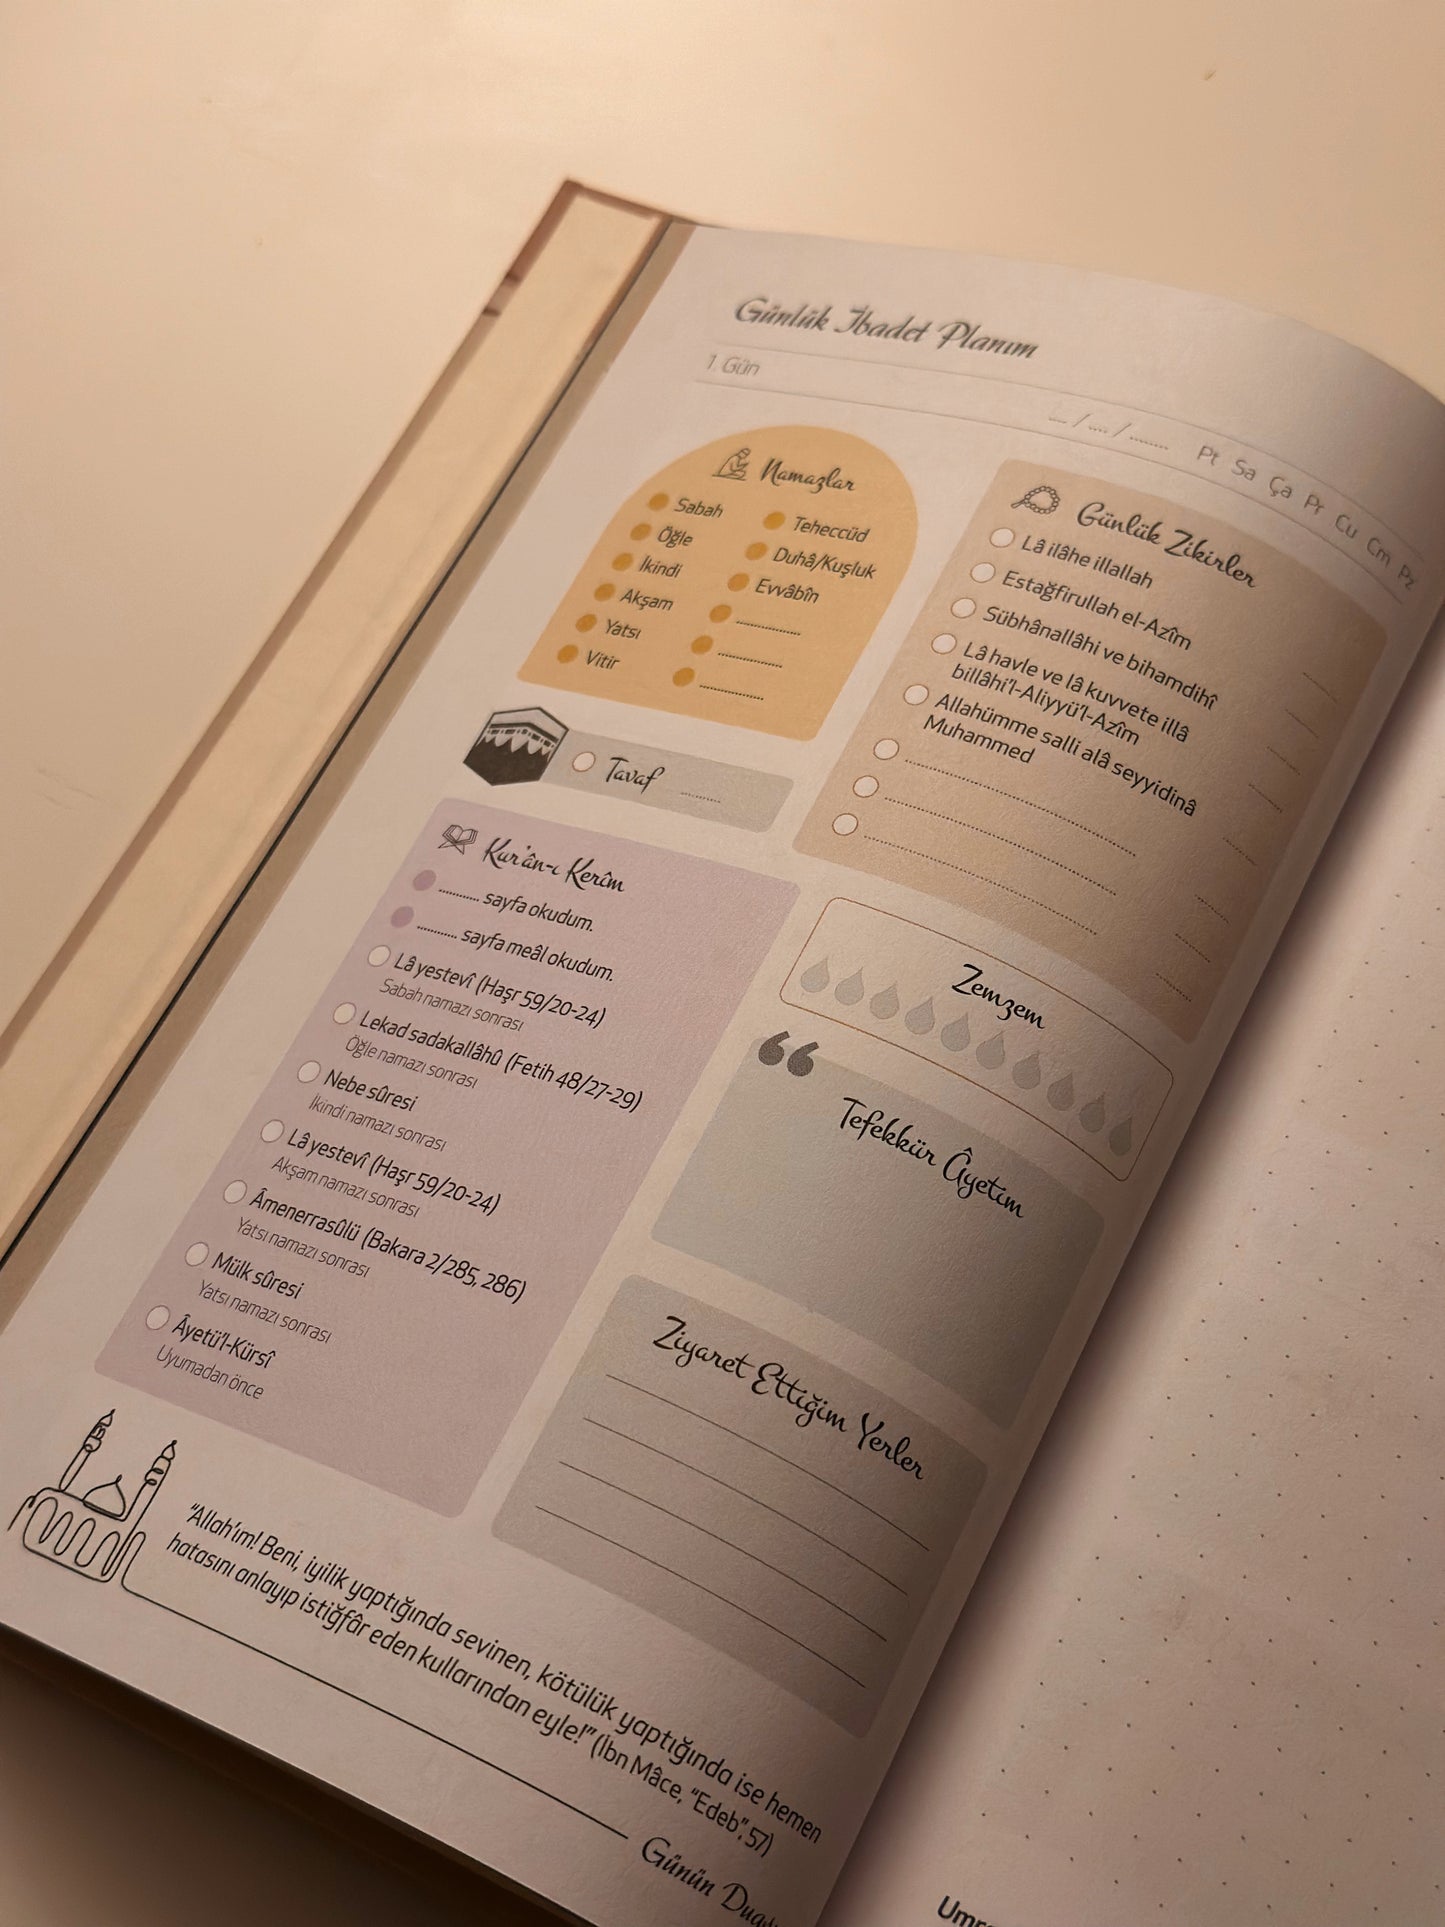 Günlük İbadet Planım
1. Gün
... / .... / ........ Pt Sa Ça Pr Cu Cm Pz
Namazlar
Sabah
Öğle
İkindi
Akşam
Yatsı
Vitir
Teheccüd
Duhâ/Kuşluk
Evvâbîn
Tavaf ..........
Günlük Zikirler
Lâ ilâhe illallah
Estağfirullah el-Azîm
Sübhânallâhi ve bihamdihî
Lâ havle ve lâ kuvvete illâ
billâhi'l-Aliyyü'l-Azîm
Allahümme salli alâ seyyidinâ
Muhammed
Kur'ân-ı Kerîm
........... sayfa okudum.
........... sayfa meâl okudum.
Lâ yestevî (Haşr 59/20-24)
Sabah namazı sonrası
Lekad sadakallâhû (Fetih 48/27-29)
Öğle namazı sonrası
Nebe sûresi
İkindi namazı sonrası
Lâ yestevî (Haşr 59/20-24)
Akşam namazı sonrası
Âmenerrasûlü (Bakara 2/285, 286)
Yatsı namazı sonrası
Mülk sûresi
Yatsı namazı sonrası
Âyetü'l-Kürsî
Uyumadan önce
Zemzem
“
Tefekkür Âyetim
Ziyaret Ettiğim Yerler
"Allah'ım! Beni, iyilik yaptığında sevinen, kötülük yaptığında ise hemen
hatasını anlayıp istiğfâr eden kullarından eyle!" (İbn Mâce, "Edeb", 57)
Günün